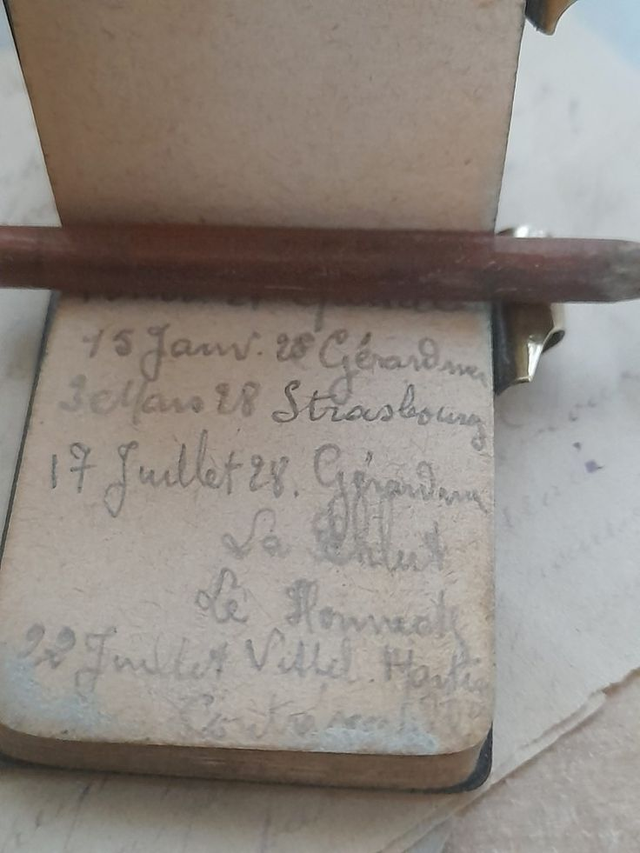 15 Janv. 28 Gérardmer
3 Mars 28 Strasbourg
17 Juillet 28. Gérardmer
La Schlut
Le Honneck
22 Juillet Vittel.